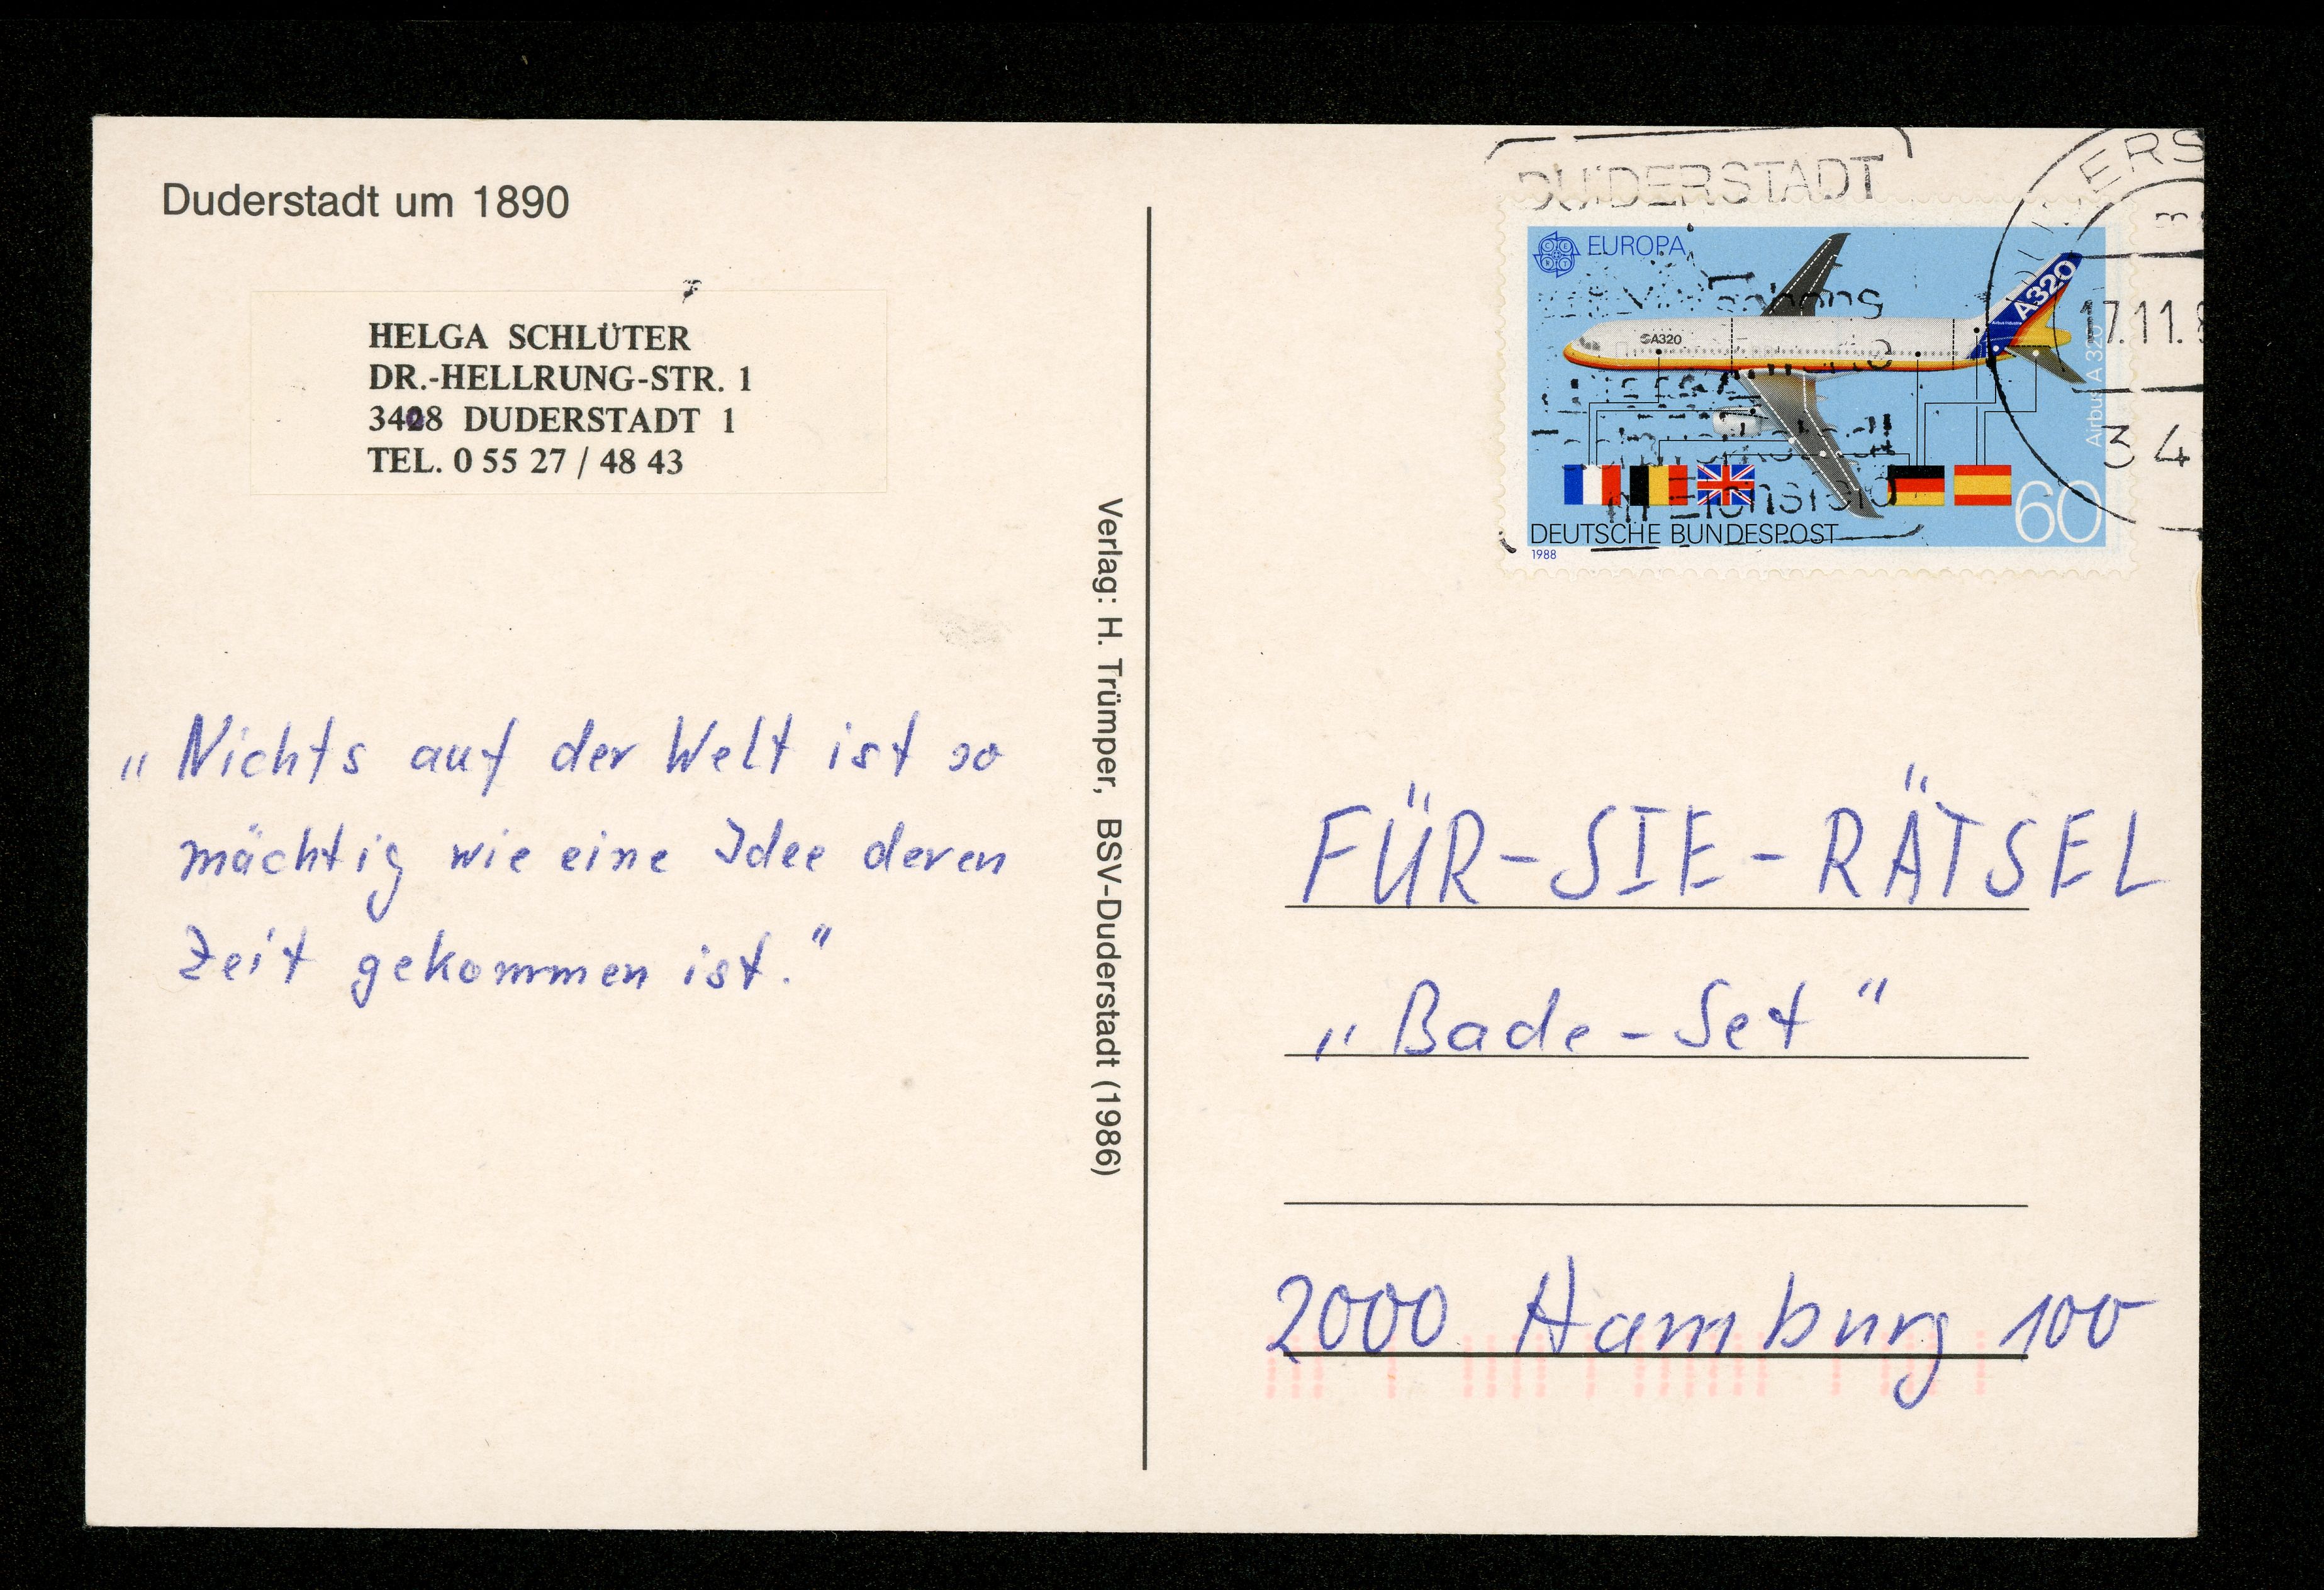 Duderstadt um 1890
HELGA SCHLÜTER
DR.-HELLRUNG-STR. 1
3408 DUDERSTADT 1
TEL. 0 55 27 / 48 43
„Nichts auf der Welt ist so
mächtig wie eine Idee deren
Zeit gekommen ist."
Verlag: H. Trümper, BSV-Duderstadt (1986)
DUDERSTADT
EUROPA
A320
A320
Airbus A 320
17.11.
34
60
DEUTSCHE BUNDESPOST
1988
FÜR-SIE-RÄTSEL
„Bade-Set"
2000 Hamburg 100